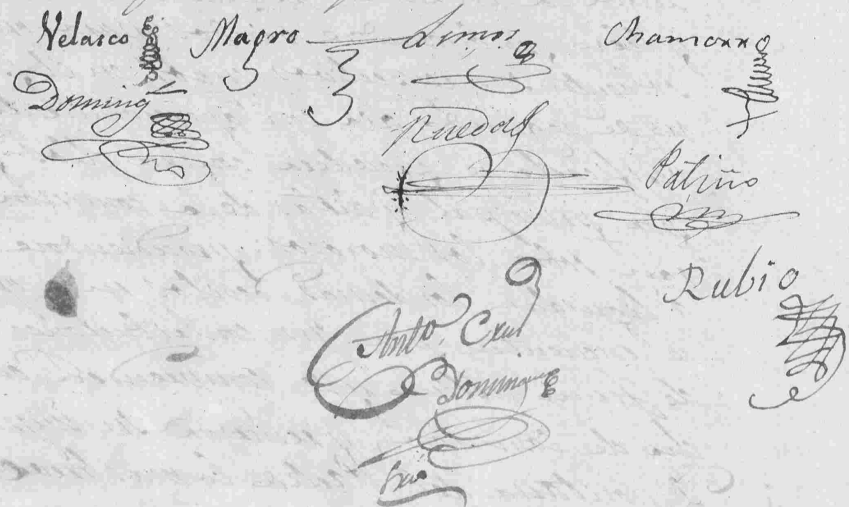 Velasco Magro Lemos Chamorro
Doming^z
Ruedas
Patiño
Rubio
Ant^o. Cruz
Doming^z